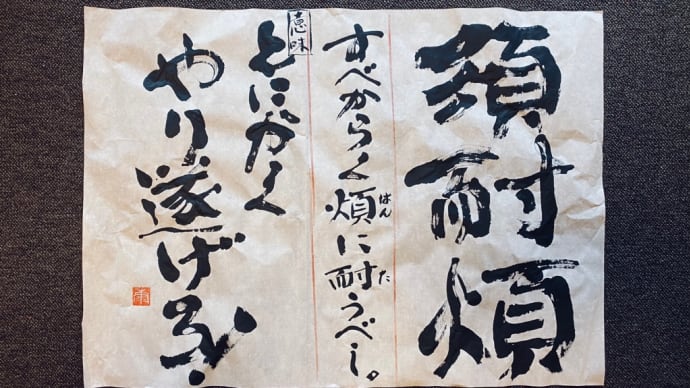 須耐煩
すべからく煩に耐うべし。
はん
た
意味
とにかく
やり遂げる!